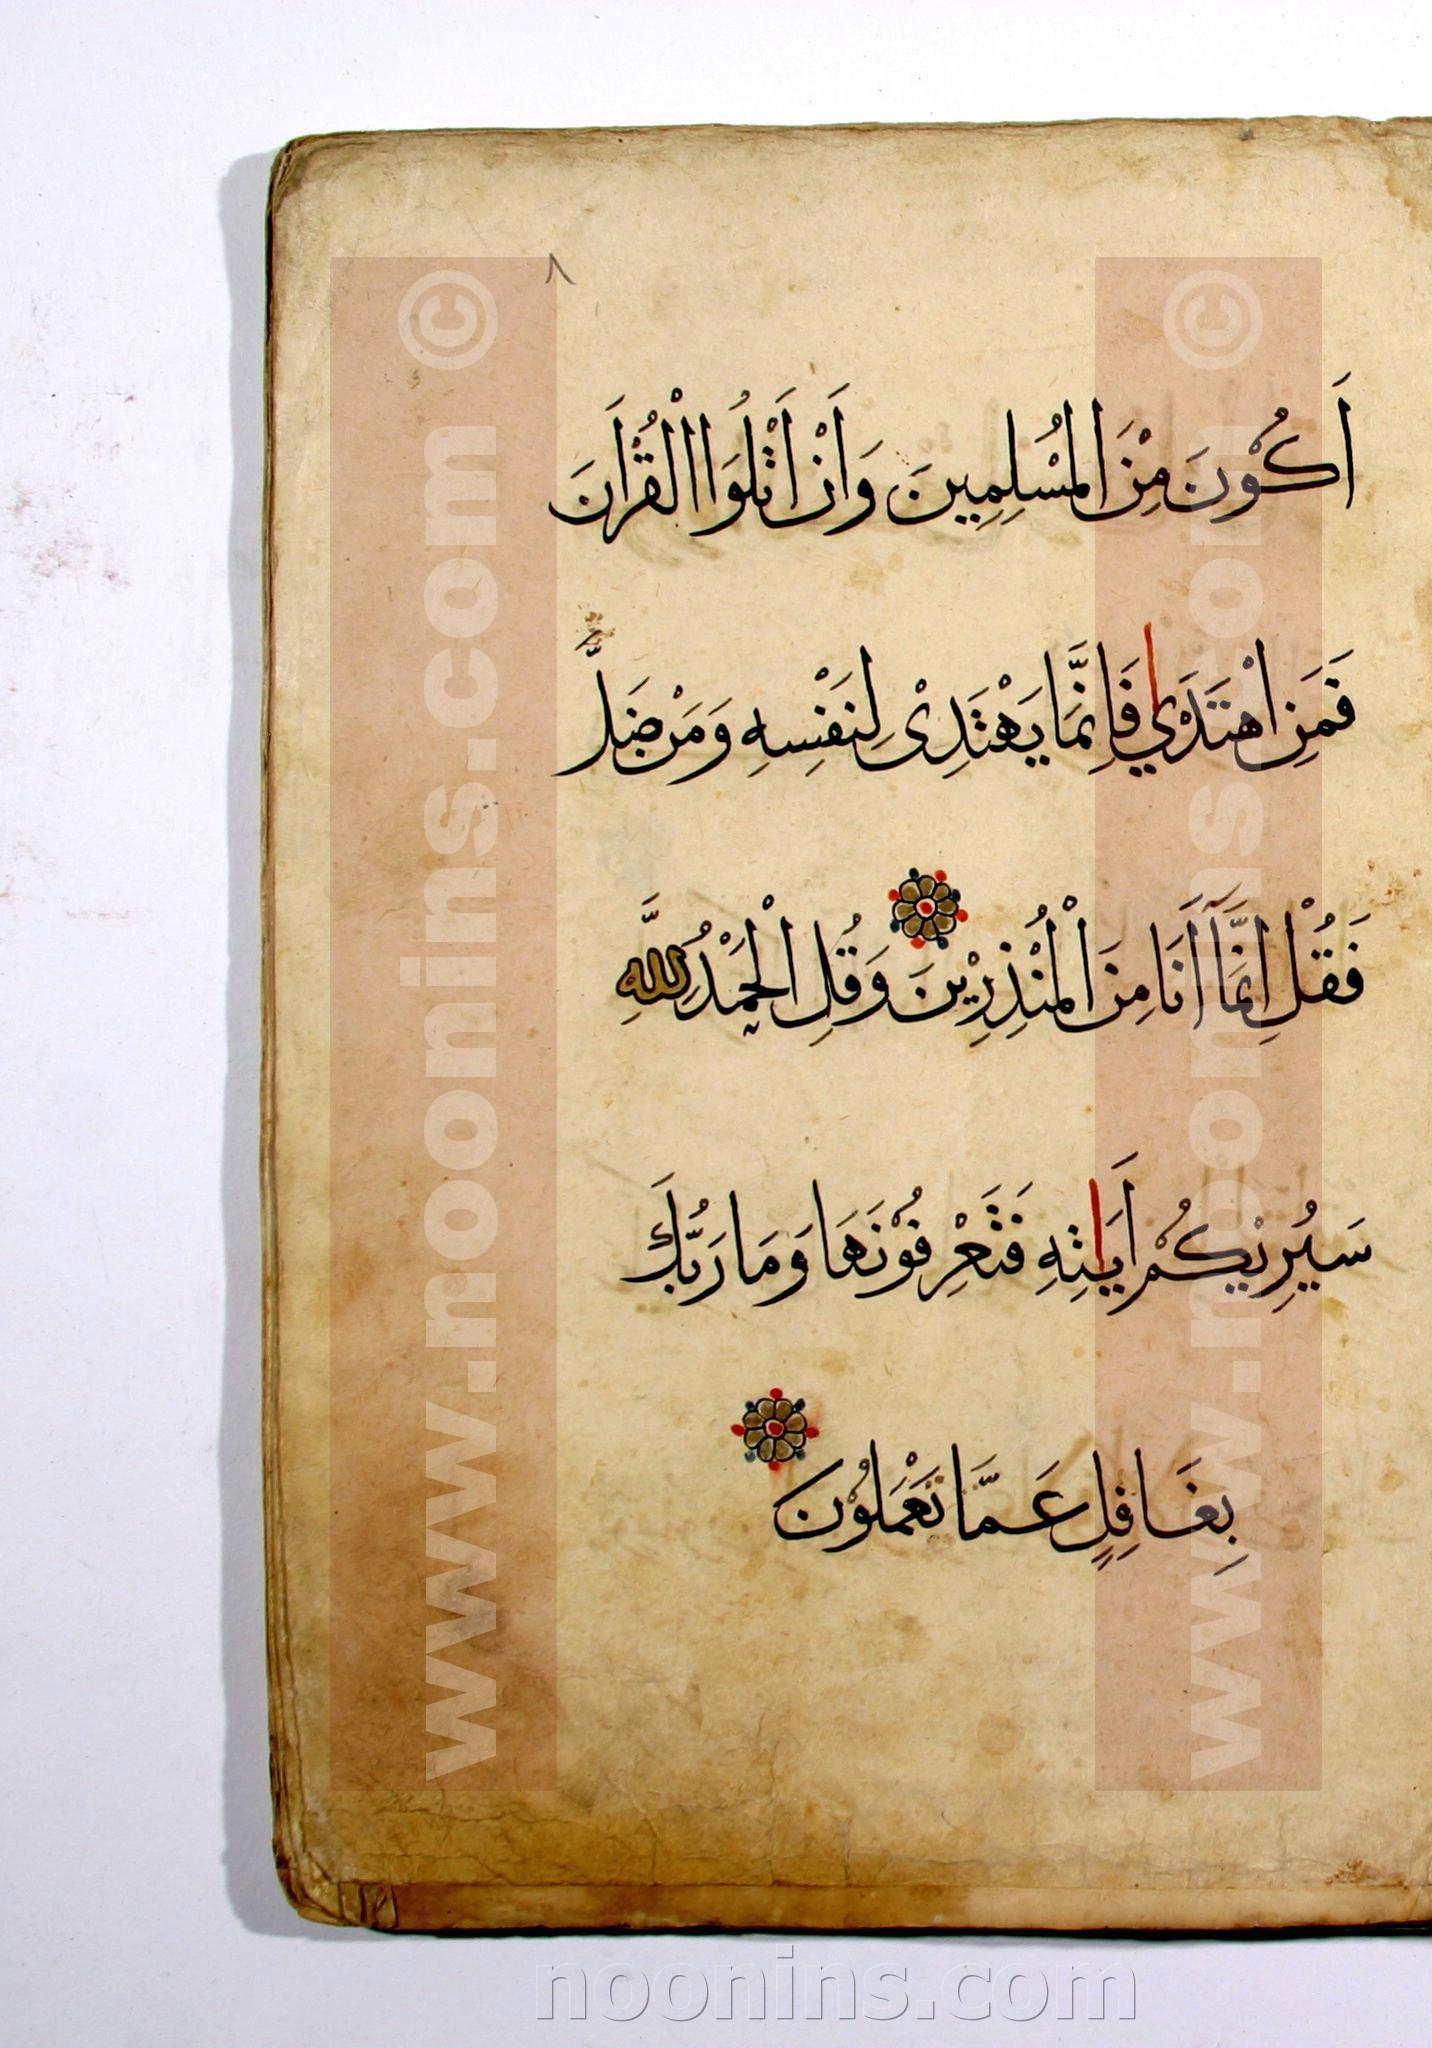 ٨
اَكُوْنَ مِنَ الْمُسْلِمِينَ وَاَنْ اَتْلُوَا الْقُرْاَنَ
فَمَنِ اهْتَدٰي فَاِنَّمَا يَهْتَدِىْ لِنَفْسِهِ وَمَنْ ضَلَّ
فَقُلْ اِنَّمَآ اَنَا مِنَ الْمُنْذِرِيْنَ وَقُلِ الْحَمْدُ لِلَّهِ
سَيُرِيْكُمْ اَيَاتِهِ فَتَعْرِفُوْنَهَا وَمَا رَبُّكَ
بِغَافِلٍ عَمَّا تَعْمَلُوْنَ
www.noonins.com ©
www.noonins.com ©
noonins.com